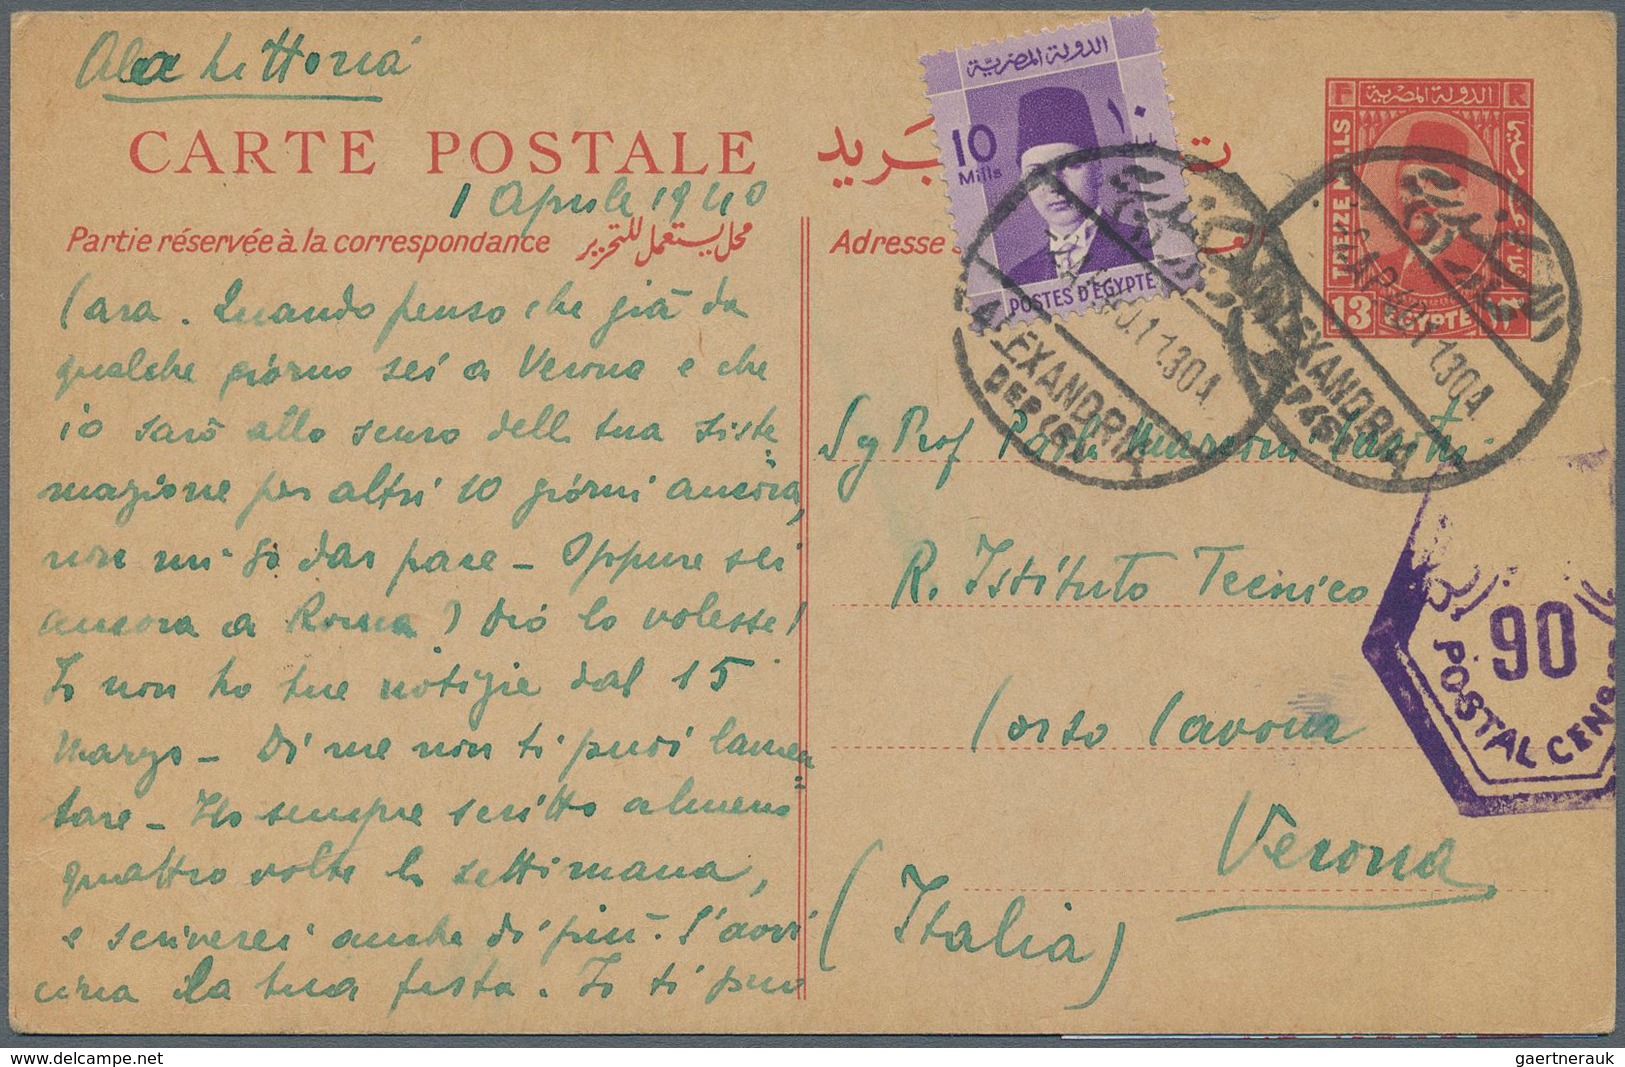 Ala Littoria
CARTE POSTALE
بريد
1 Aprile 1940
Partie réservée à la correspondance محل يستعمل للتحرير
Adresse
Cara. Quando penso che già da
qualche giorno sei a Verona e che
io sarò allo scuro della tua siste=
mazione per altri 10 giorni ancora,
non mi so dar pace - Oppure sei
ancora a Roma? Dio lo volesse!
Io non ho tue notizie dal 15
Marzo - Di me non ti puoi lamen=
tare - Ho sempre scritto almeno
quattro volte la settimana,
e scriverei anche di più. S'avvi
cina la tua festa. Io ti può
الدولة المصرية
10 ١٠
Mills
POSTES D'EGYPTE
F الدولة المصرية R
TREIZE MILLS
13 EGYPTE ١٣
ALEXANDRIA
ALEXANDRIA
Sg Prof
R. Istituto Tecnico
Corso Cavour
Verona
(Italia)
90
POSTAL CENSOR
www.delcampe.net
gaertnerauk